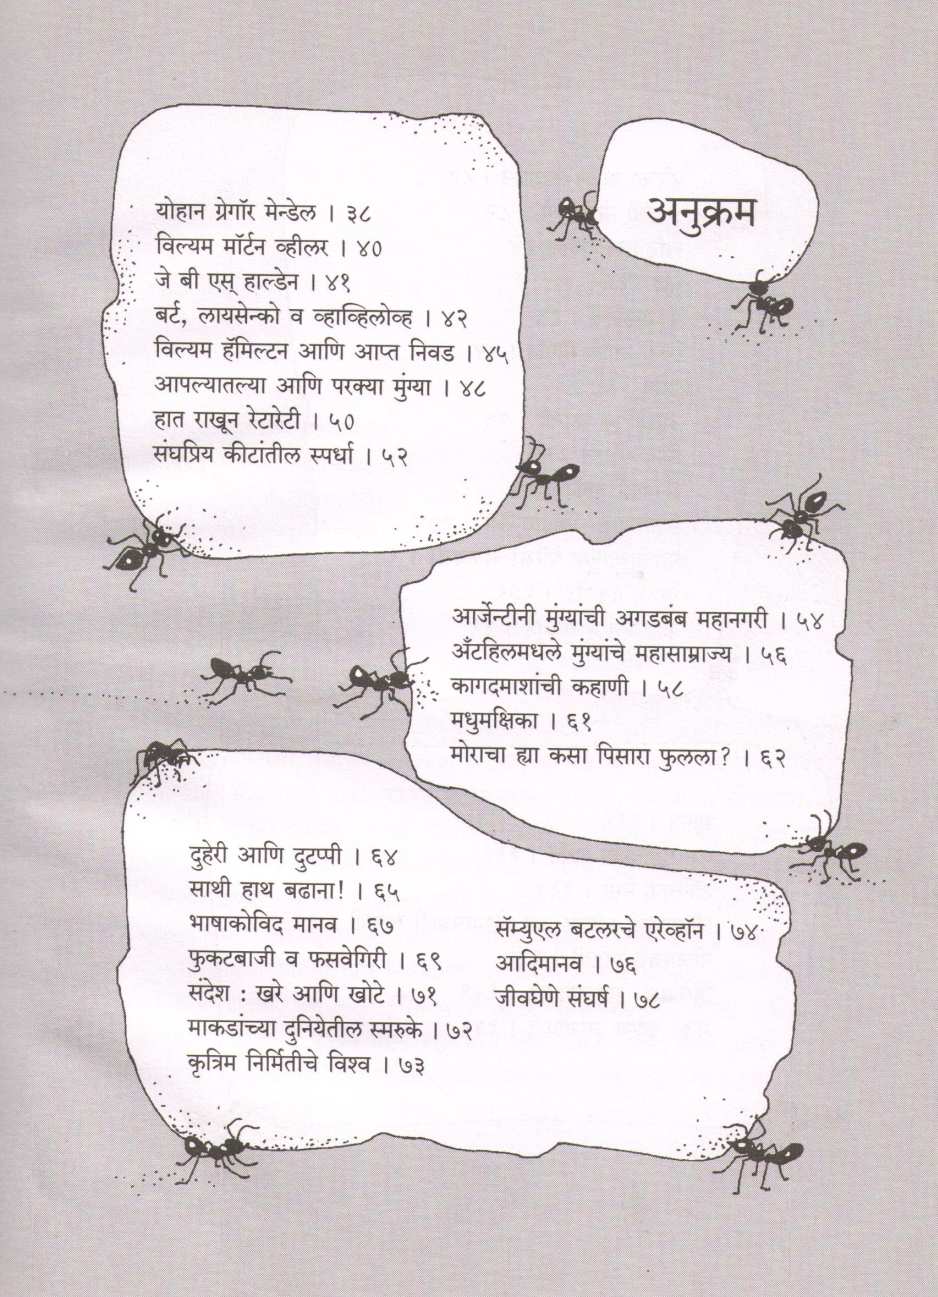 अनुक्रम
योहान ग्रेगॉर मेन्डेल । ३८
विल्यम मॉर्टन व्हीलर । ४०
जे बी एस् हाल्डेन । ४१
बर्ट, लायसेन्को व व्हाव्हिलोव्ह । ४२
विल्यम हॅमिल्टन आणि आप्त निवड । ४५
आपल्यातल्या आणि परक्या मुंग्या । ४८
हात राखून रेटारेटी । ५०
संघप्रिय कीटांतील स्पर्धा । ५२
आर्जेन्टीनी मुंग्यांची अगडबंब महानगरी । ५४
अँटहिलमधले मुंग्यांचे महासाम्राज्य । ५६
कागदमाशांची कहाणी । ५८
मधुमक्षिका । ६१
मोराचा ह्या कसा पिसारा फुलला? । ६२
दुहेरी आणि दुटप्पी । ६४
साथी हाथ बढाना! । ६५
भाषाकोविद मानव । ६७
फुकटबाजी व फसवेगिरी । ६९
संदेश : खरे आणि खोटे । ७१
माकडांच्या दुनियेतील स्मरुके । ७२
कृत्रिम निर्मितीचे विश्व । ७३
सॅम्युएल बटलरचे एरेव्हॉन । ७४
आदिमानव । ७६
जीवघेणे संघर्ष । ७८